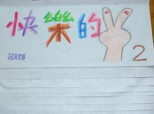 快樂的
2